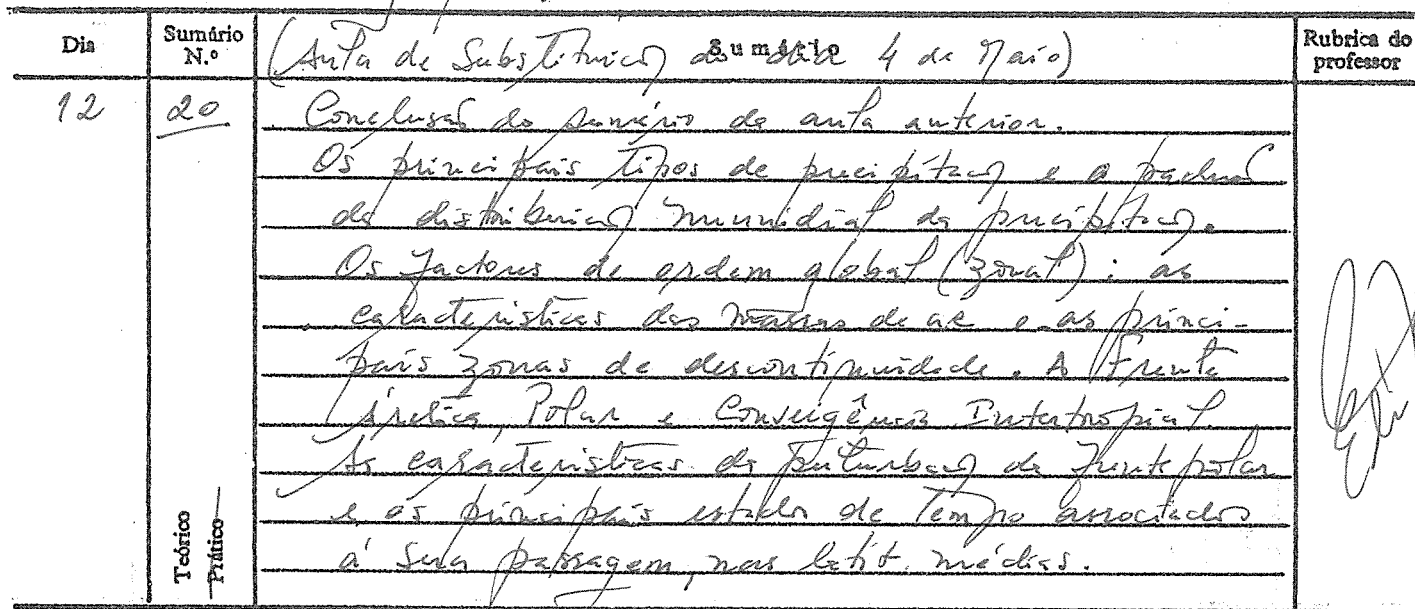 Dia
Sumário N.º
Sumário
(Aula de Substituição do dia 4 de Maio)
Rubrica do professor
12
20
Conclusão do sumário da aula anterior.
Os principais tipos de precipitação e o padrão
da distribuição mundial da precipitação.
Os factores de ordem global (zonal): as
características das massas de ar e as princi-
pais zonas de descontinuidade. A Frente
Árctica, Polar e Convergência Intertropical.
As características da perturbação da frente polar
e os principais estados de tempo associados
à sua passagem, nas latit. médias.
Teórico
Prático